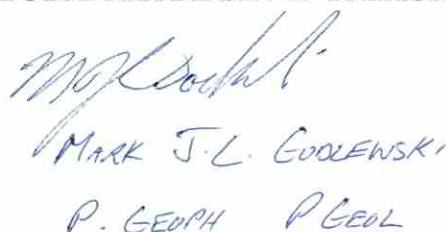 MARK J.L. GODLEWSKI
P. GEOPH P GEOL